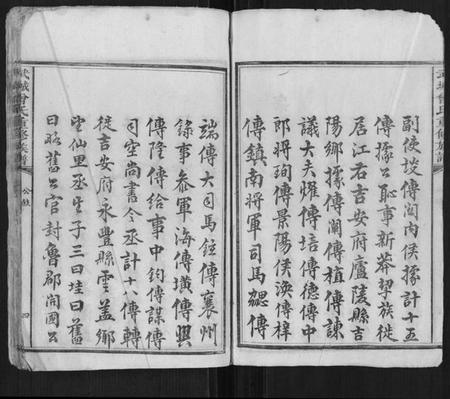 武城曾氏重修族譜
副使琰傳關內侯據計十五
傳據公恥事新莽挈族徙
居江右吉安府廬陵縣吉
陽鄉據傳闡傳植傳諫
議大夫燿傳培傳德傳中
郎將珣傳景陽侯渙傳梓
傳鎮南將軍司馬勰傳
端傳大司馬鉦傳襄州
錄事叅軍海傳璜傳興
傳隆傳給事中鈞傳謀傳
司空尚書令丞計十八傳轉
徙吉安府永豐縣雲蓋鄉
望仙里丞生子三曰珪曰舊
曰略舊公官封魯郡開國公
武城曾氏重修族譜
四